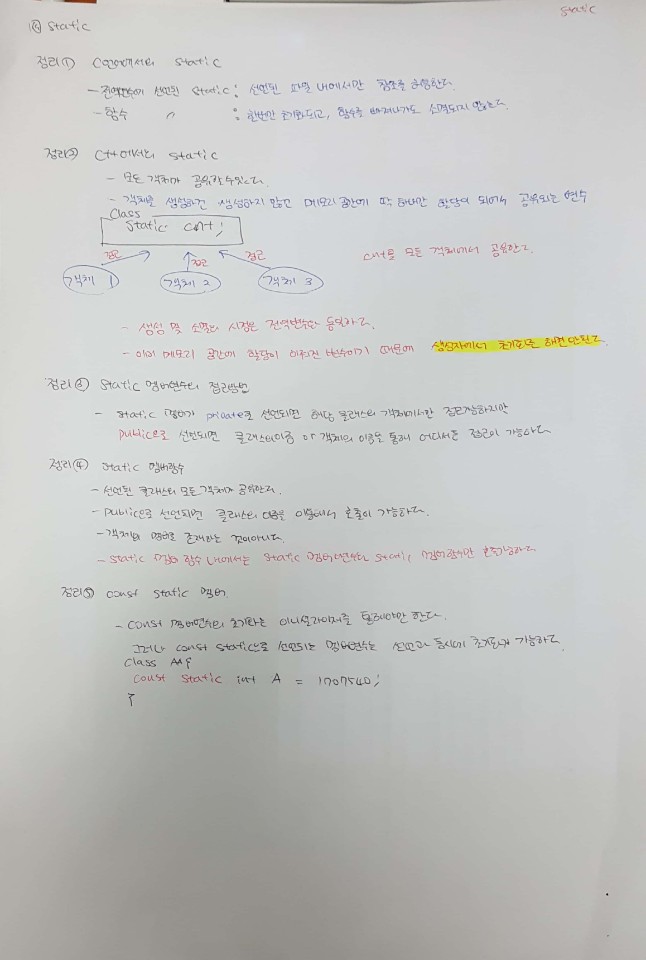 static
16 static
정리① C언어에서의 static
- 전역변수에 선언된 static : 선언된 파일 내에서만 참조를 허용한다.
- 함수 〃 : 한번만 초기화되고, 함수를 빠져나가도 소멸되지 않는다.
정리② C++에서의 static
- 모든 객체가 공유할 수 있다.
- 객체를 생성하건 생성하지 않건 메모리 공간에 딱 하나만 할당이 되어서 공유되는 변수
Class
static cnt;
접근 접근 접근
cnt를 모든 객체에서 공유한다.
객체 1 객체 2 객체 3
- 생성 및 소멸의 시점은 전역변수와 동일하다.
- 이미 메모리 공간에 할당이 이뤄진 변수이기 때문에 생성자에서 초기화를 하면 안된다
정리③ static 멤버변수의 접근방법
- static 멤버가 private로 선언되면 해당 클래스의 객체에서만 접근가능하지만
public으로 선언되면 클래스의 이름 or 객체의 이름을 통해 어디서든 접근이 가능하다
정리④ static 멤버함수
- 선언된 클래스의 모든 객체가 공유한다.
- public으로 선언되면 클래스의 이름을 이용해서 호출이 가능하다.
- 객체의 멤버로 존재하는 것이 아니다.
- static 멤버 함수 내에서는 static 멤버변수와 static 멤버함수만 호출가능하다
정리⑤ const static 멤버
- const 멤버변수의 초기화는 이니셜라이저를 통해야만 한다.
그러나 const static으로 선언되는 멤버변수는 선언과 동시에 초기화가 가능하다.
Class AA{
const static int A = 1707540;
}